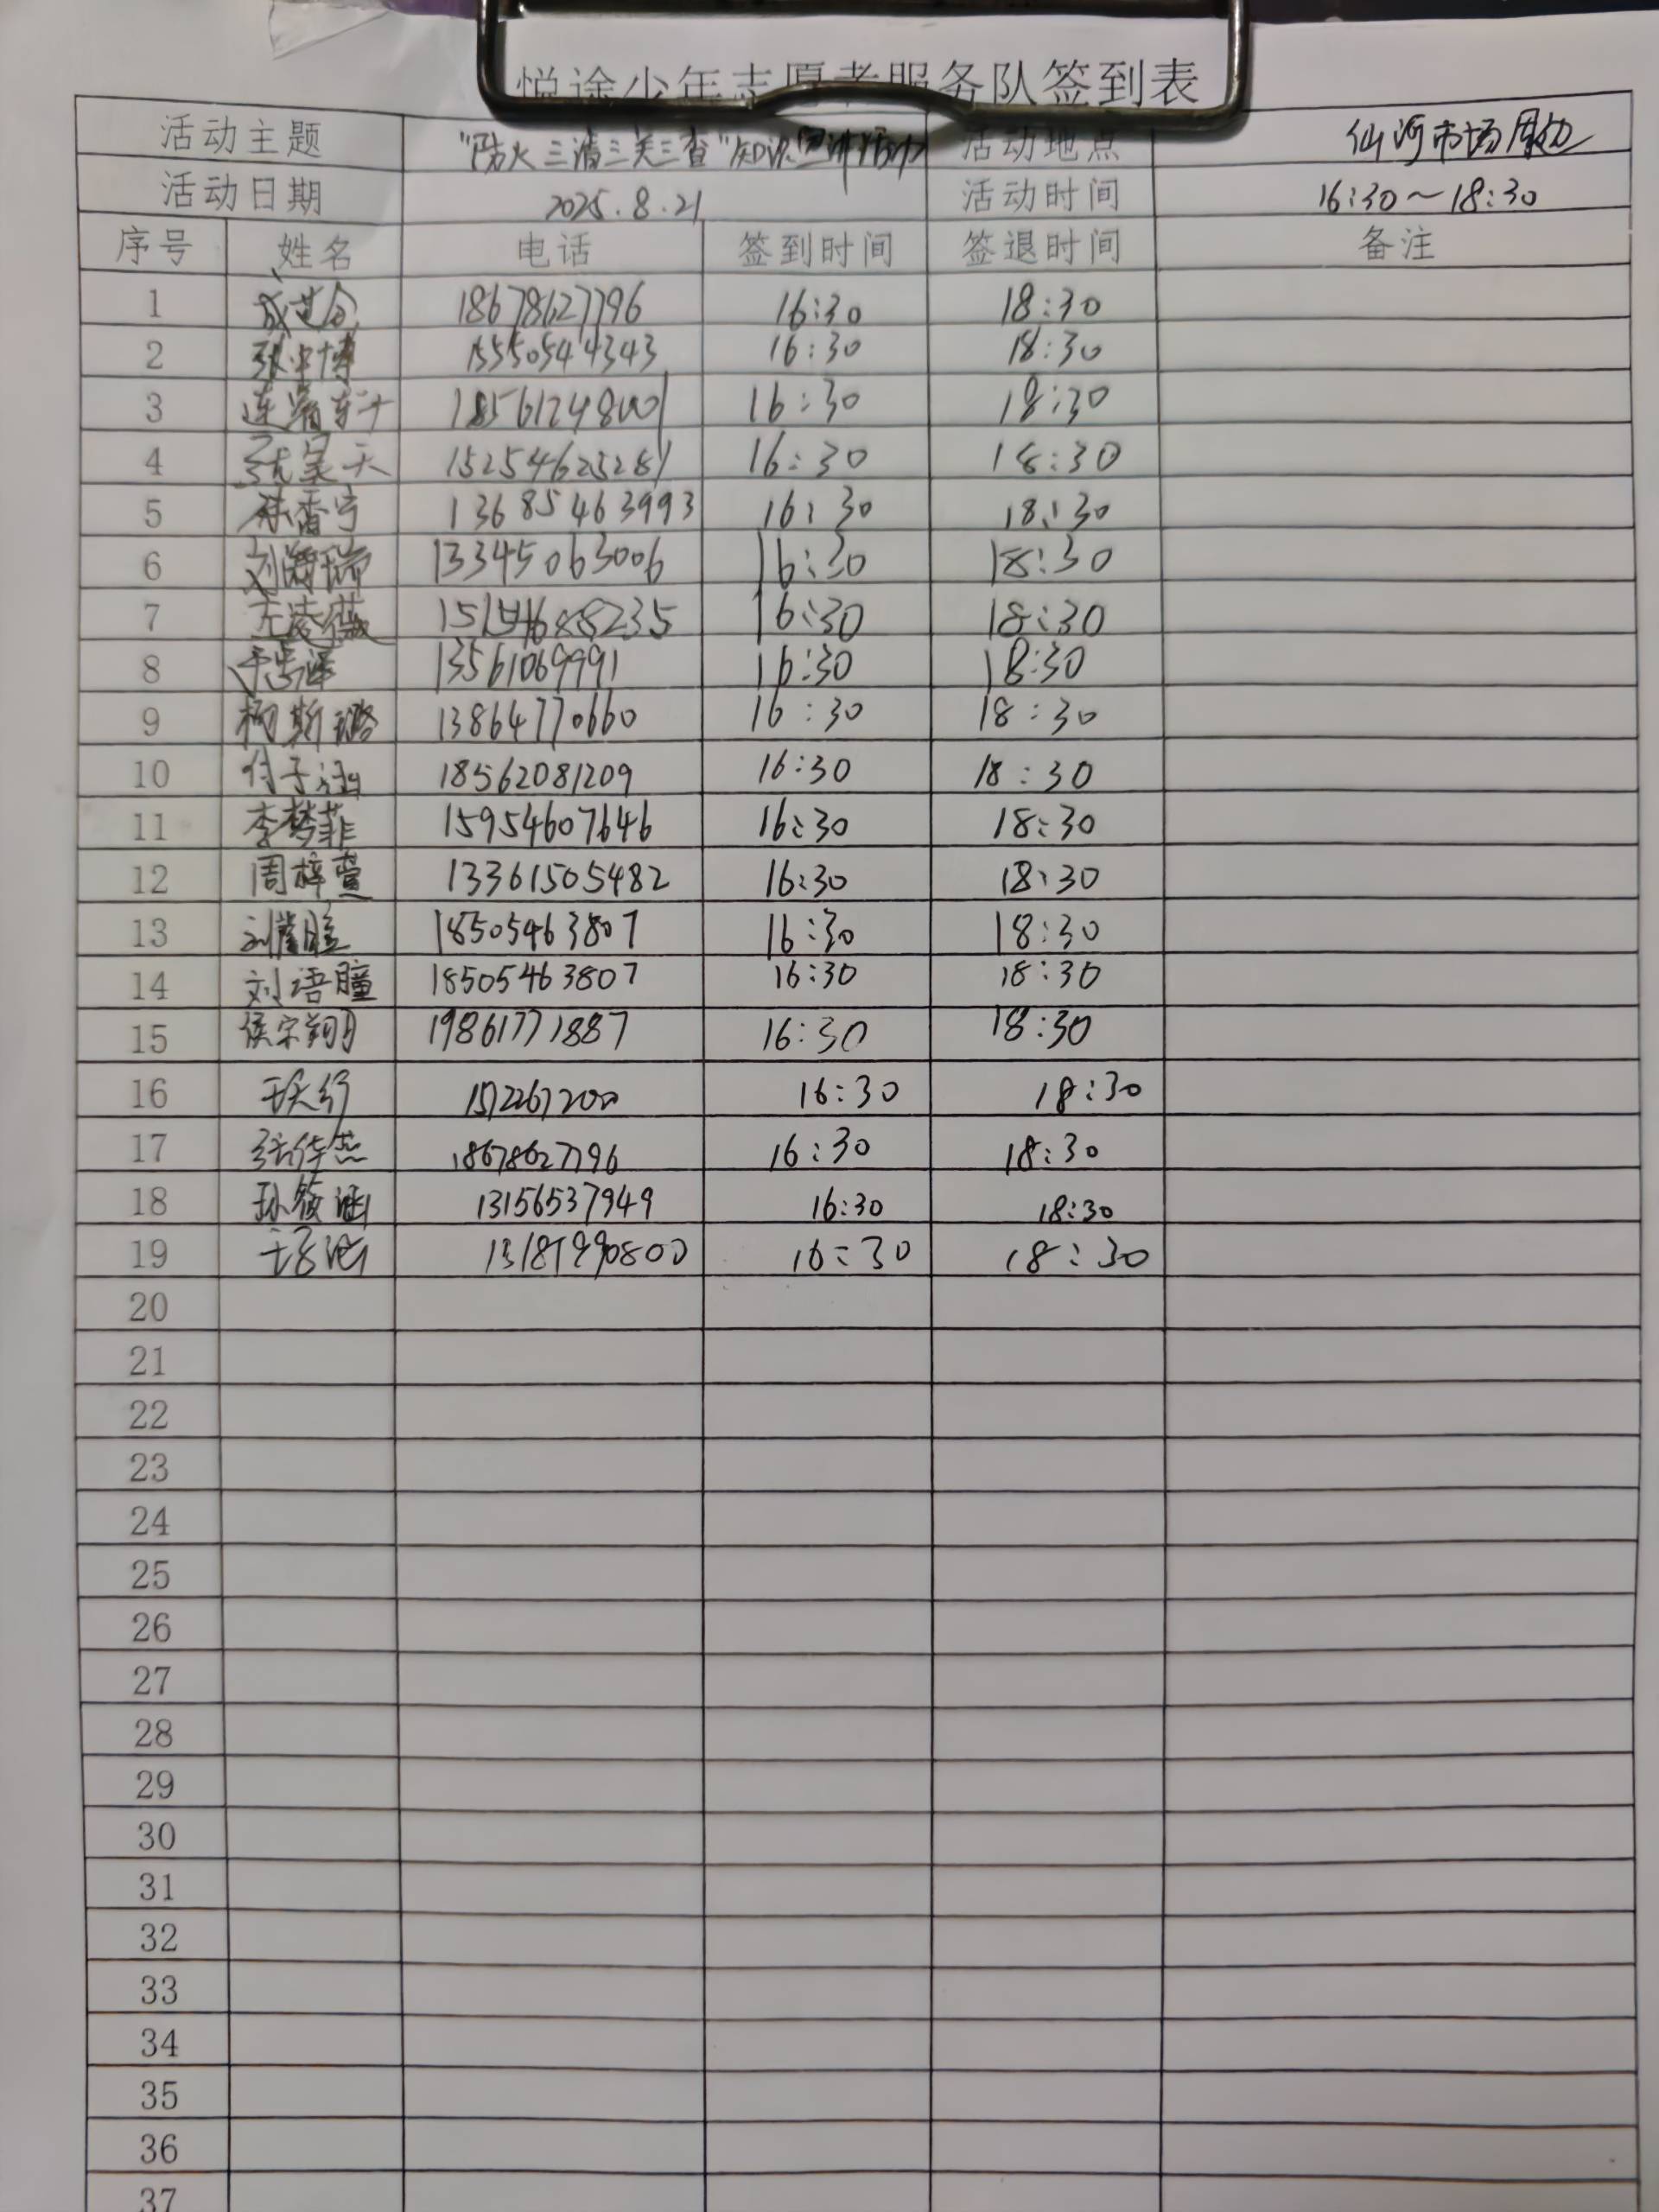 悦途少年志愿者服务队签到表
活动主题 "防火三清三关三查"知识宣讲活动 活动地点 仙河市场周边
活动日期 2025.8.21 活动时间 16:30～18:30
序号 姓名 电话 签到时间 签退时间 备注
1 18678627796 16:30 18:30
2 张中博 15550544343 16:30 18:30
3 连 18561248001 16:30 18:30
4 张昊天 15254625281 16:30 18:30
5 林雪宁 13685463993 16:30 18:30
6 刘 瑞 13345063006 16:30 18:30
7 王凌薇 16:30 18:30
8 13561069991 16:30 18:30
9 柳斯璐 13864770660 16:30 18:30
10 付子涵 18562081209 16:30 18:30
11 李梦菲 15954607646 16:30 18:30
12 周梓萱 13361505482 16:30 18:30
13 刘 瞳 18505463807 16:30 18:30
14 刘语瞳 18505463807 16:30 18:30
15 侯宗翔 19861771887 16:30 18:30
16 16:30 18:30
17 张华燕 18678627796 16:30 18:30
18 孙筱涵 13156537949 16:30 18:30
19 16:30 18:30
20
21
22
23
24
25
26
27
28
29
30
31
32
33
34
35
36
37